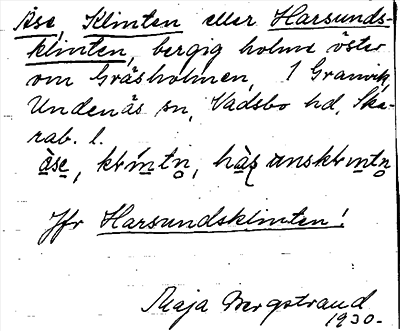 Åse, Klinten eller Harsunds-
klinten, bergig holme öster
om Gråsholmen, i Granvik,
Undenäs sn, Vadsbo hd, Ska-
rab. l.
Jfr Harsundsklinten!
Maja Bergstrand
1930.